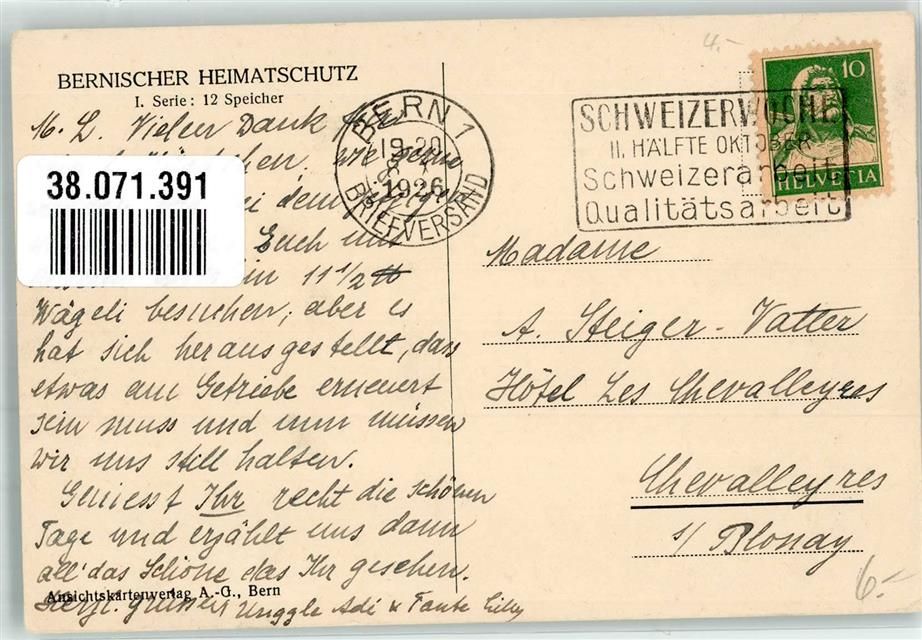 BERNISCHER HEIMATSCHUTZ
I. Serie: 12 Speicher
M. L. Vielen Dank
wie gern
38.071.391
ei dem
Euch und
11 1/2
Wägeli besuchen, aber es
hat sich herausgestellt, dass
etwas am Getriebe erneuert
sein muss und nun müssen
wir uns still halten.
Geniesst Ihr recht die schönen
Tage und erzählt uns dann
all' das Schöne das Ihr gesehen.
Ansichtskartenverlag A.-G., Bern
Herzl. grüssen Adi & Tante Lily
BERN 1
19-20
1926
BRIEFVERSAND
4.-
SCHWEIZERWOCHE
II. HÄLFTE OKTOBER
Schweizerarbeit
Qualitätsarbeit
10
HELVETIA
Madame
A. Steiger-Vatter
Hôtel Les Chevalleyres
Chevalleyres
s/ Blonay
6.-